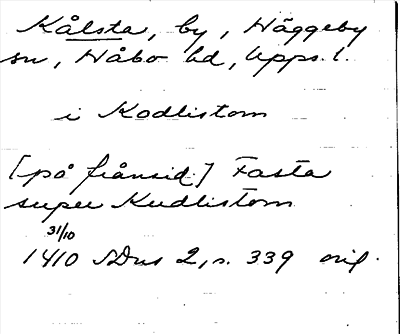 Kålsta, by, Häggeby
sn, Håbo hd, Upps. l.
i Kodlistom
[på frånsid.] Fasta
super Kudlistom
31/10
1410 SDns 2, s. 339 orig.